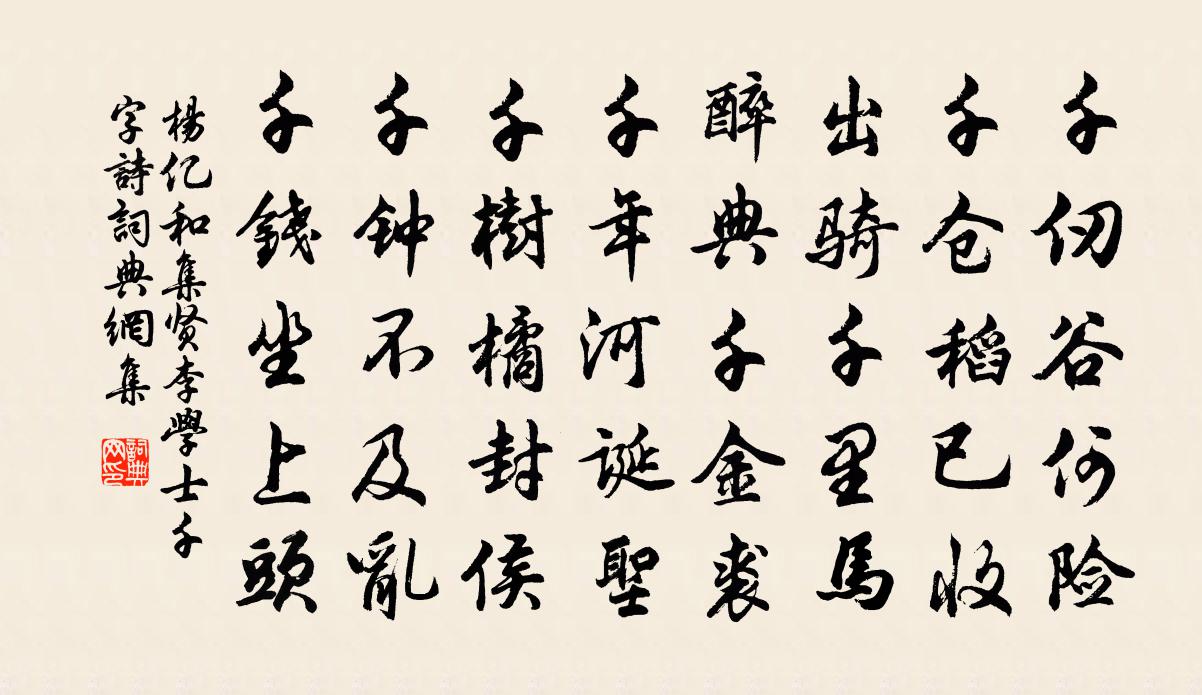 千仞谷何险
千仓稻已收
出骑千里馬
醉典千金裘
千年河誕聖
千樹橘封侯
千钟不及亂
千錢坐上頭
楊亿和集贤李學士千
字詩詞典網集
詞典
网印